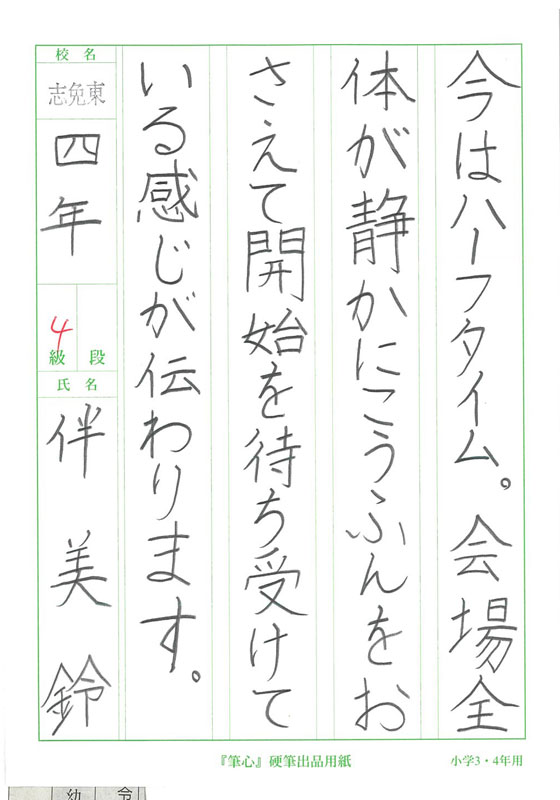 今はハーフタイム。会場全
体が静かにこうふんをお
さえて開始を待ち受けて
いる感じが伝わります。
校名
志免東
四年
4
級 段
氏名
伴 美 鈴
『筆心』硬筆出品用紙
小学3・4年用
幼 令